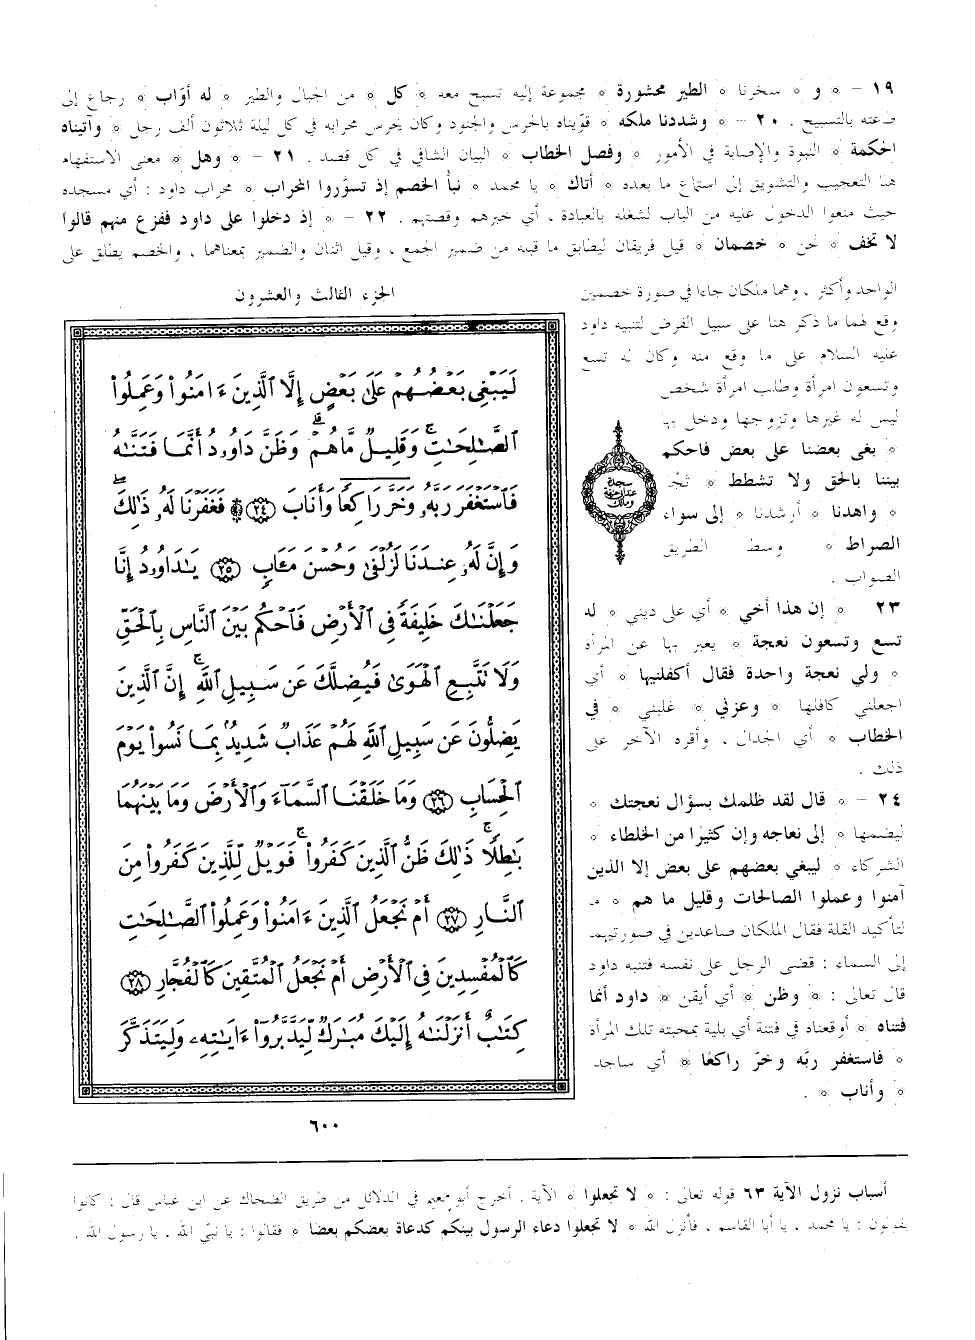 ١٩ - ﴿ و ﴾ سخرنا ﴿ الطير محشورة ﴾ مجموعة إليه تسبح معه ﴿ كل ﴾ من الجبال والطير ﴿ له أوّاب ﴾ رجاع إلى
طاعته بالتسبيح . ٢٠ - ﴿ وشددنا ملكه ﴾ قوّيناه بالحرس والجنود وكان يحرس محرابه في كل ليلة ثلاثون ألف رجل ﴿ وآتيناه
الحكمة ﴾ النبوة والإصابة في الأمور ﴿ وفصل الخطاب ﴾ البيان الشافي في كل قصد . ٢١ - ﴿ وهل ﴾ معنى الاستفهام
هنا التعجيب والتشويق إلى استماع ما بعده ﴿ أتاك ﴾ يا محمد ﴿ نبأ الخصم إذ تسوّروا المحراب ﴾ محراب داود : أي مسجده
حيث منعوا الدخول عليه من الباب لشغله بالعبادة ، أي خبرهم وقصتهم . ٢٢ - ﴿ إذ دخلوا على داود ففزع منهم قالوا
لا تخف ﴾ نحن ﴿ خصمان ﴾ قيل فريقان ليطابق ما قبله من ضمير الجمع ، وقيل اثنان والضمير بمعناهما ، والخصم يطلق على
الواحد وأكثر ، وهما ملكان جاءا في صورة خصمين
وقع لهما ما ذكر هنا على سبيل الفرض لتنبيه داود
عليه السلام على ما وقع منه وكان له تسع
وتسعون امرأة وطلب امرأة شخص
ليس له غيرها وتزوجها ودخل بها
﴿ بغى بعضنا على بعض فاحكم
بيننا بالحق ولا تشطط ﴾ تجُر
﴿ واهدنا ﴾ أرشدنا ﴿ إلى سواء
الصراط ﴾ وسط الطريق
الصواب .
٢٣ ﴿ إن هذا أخي ﴾ أي على ديني ﴿ له
تسع وتسعون نعجة ﴾ يعبر بها عن المرأة
﴿ ولي نعجة واحدة فقال أكفلنيها ﴾ أي
اجعلني كافلها ﴿ وعزني ﴾ غلبني ﴿ في
الخطاب ﴾ أي الجدال ، وأقره الآخر على
ذلك .
٢٤ - ﴿ قال لقد ظلمك بسؤال نعجتك ﴾
ليضمها ﴿ إلى نعاجه وإن كثيرًا من الخلطاء ﴾
الشركاء ﴿ ليبغي بعضهم على بعض إلا الذين
آمنوا وعملوا الصالحات وقليل ما هم ﴾ ما
لتأكيد القلة فقال الملكان صاعدين في صورتيهما
إلى السماء : قضى الرجل على نفسه فتنبه داود
قال تعالى : ﴿ وظن ﴾ أي أيقن ﴿ داود أنما
فتناه ﴾ أوقعناه في فتنة أي بلية بمحبته تلك المرأة
﴿ فاستغفر ربّه وخرّ راكعًا ﴾ أي ساجد
﴿ وأناب ﴾ .
سجدة
عند أبي حنيفة
ومالك
الجزء الثالث والعشرون
لَيَبْغِى بَعْضُهُمْ عَلَىٰ بَعْضٍ إِلَّا ٱلَّذِينَ ءَامَنُوا۟ وَعَمِلُوا۟
ٱلصَّـٰلِحَـٰتِ وَقَلِيلٌ مَّا هُمْ وَظَنَّ دَاوُۥدُ أَنَّمَا فَتَنَّـٰهُ
فَٱسْتَغْفَرَ رَبَّهُۥ وَخَرَّ رَاكِعًا وَأَنَابَ ﴿٢٤﴾ ۞ فَغَفَرْنَا لَهُۥ ذَٰلِكَ
وَإِنَّ لَهُۥ عِندَنَا لَزُلْفَىٰ وَحُسْنَ مَـَٔابٍ ﴿٢٥﴾ يَـٰدَاوُۥدُ إِنَّا
جَعَلْنَـٰكَ خَلِيفَةً فِى ٱلْأَرْضِ فَٱحْكُم بَيْنَ ٱلنَّاسِ بِٱلْحَقِّ
وَلَا تَتَّبِعِ ٱلْهَوَىٰ فَيُضِلَّكَ عَن سَبِيلِ ٱللَّهِ إِنَّ ٱلَّذِينَ
يَضِلُّونَ عَن سَبِيلِ ٱللَّهِ لَهُمْ عَذَابٌ شَدِيدٌۢ بِمَا نَسُوا۟ يَوْمَ
ٱلْحِسَابِ ﴿٢٦﴾ وَمَا خَلَقْنَا ٱلسَّمَآءَ وَٱلْأَرْضَ وَمَا بَيْنَهُمَا
بَـٰطِلًا ذَٰلِكَ ظَنُّ ٱلَّذِينَ كَفَرُوا۟ فَوَيْلٌ لِّلَّذِينَ كَفَرُوا۟ مِنَ
ٱلنَّارِ ﴿٢٧﴾ أَمْ نَجْعَلُ ٱلَّذِينَ ءَامَنُوا۟ وَعَمِلُوا۟ ٱلصَّـٰلِحَـٰتِ
كَٱلْمُفْسِدِينَ فِى ٱلْأَرْضِ أَمْ نَجْعَلُ ٱلْمُتَّقِينَ كَٱلْفُجَّارِ ﴿٢٨﴾
كِتَـٰبٌ أَنزَلْنَـٰهُ إِلَيْكَ مُبَـٰرَكٌ لِّيَدَّبَّرُوٓا۟ ءَايَـٰتِهِۦ وَلِيَتَذَكَّرَ
٦٠٠
أسباب نزول الآية ٦٣ قوله تعالى : ﴿ لا تجعلوا ﴾ الآية . أخرج أبو نعيم في الدلائل من طريق الضحاك عن ابن عباس قال : كانوا
يقولون : يا محمد ، يا أبا القاسم ، فأنزل الله ﴿ لا تجعلوا دعاء الرسول بينكم كدعاء بعضكم بعضا ﴾ فقالوا : يا نبيّ الله ، يا رسول الله .